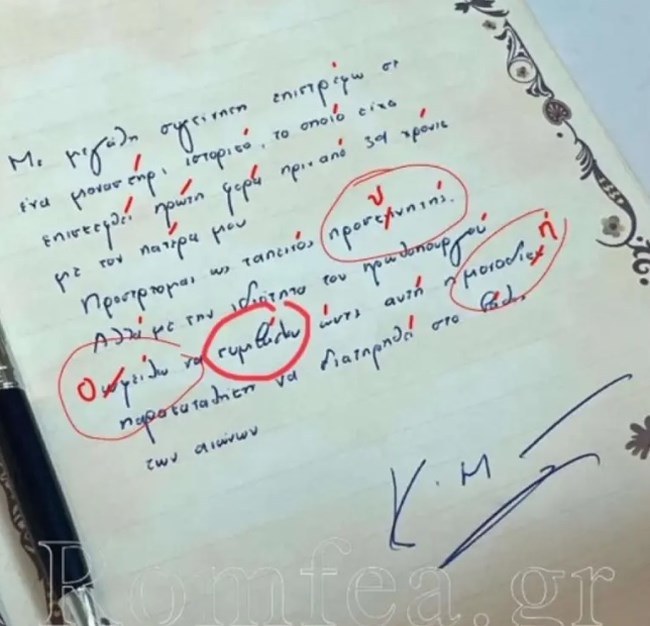 Με μεγάλη συγκίνηση επιστρέφω σε
ένα μοναστήρι ιστορικό, το οποίο είχα
επισκεφθεί πρώτη φορά πριν από 39 χρόνια
με τον πατέρα μου
Προσέρχομαι ως ταπεινός προσκυνητής.
Αλλά με την ιδιότητα του πρωθυπουργού
οφείλω να συμβάλω ώστε αυτή η μοναδική
παρακαταθήκη να διατηρηθεί στο
των αιώνων
Κ. Μ
Romfea.gr